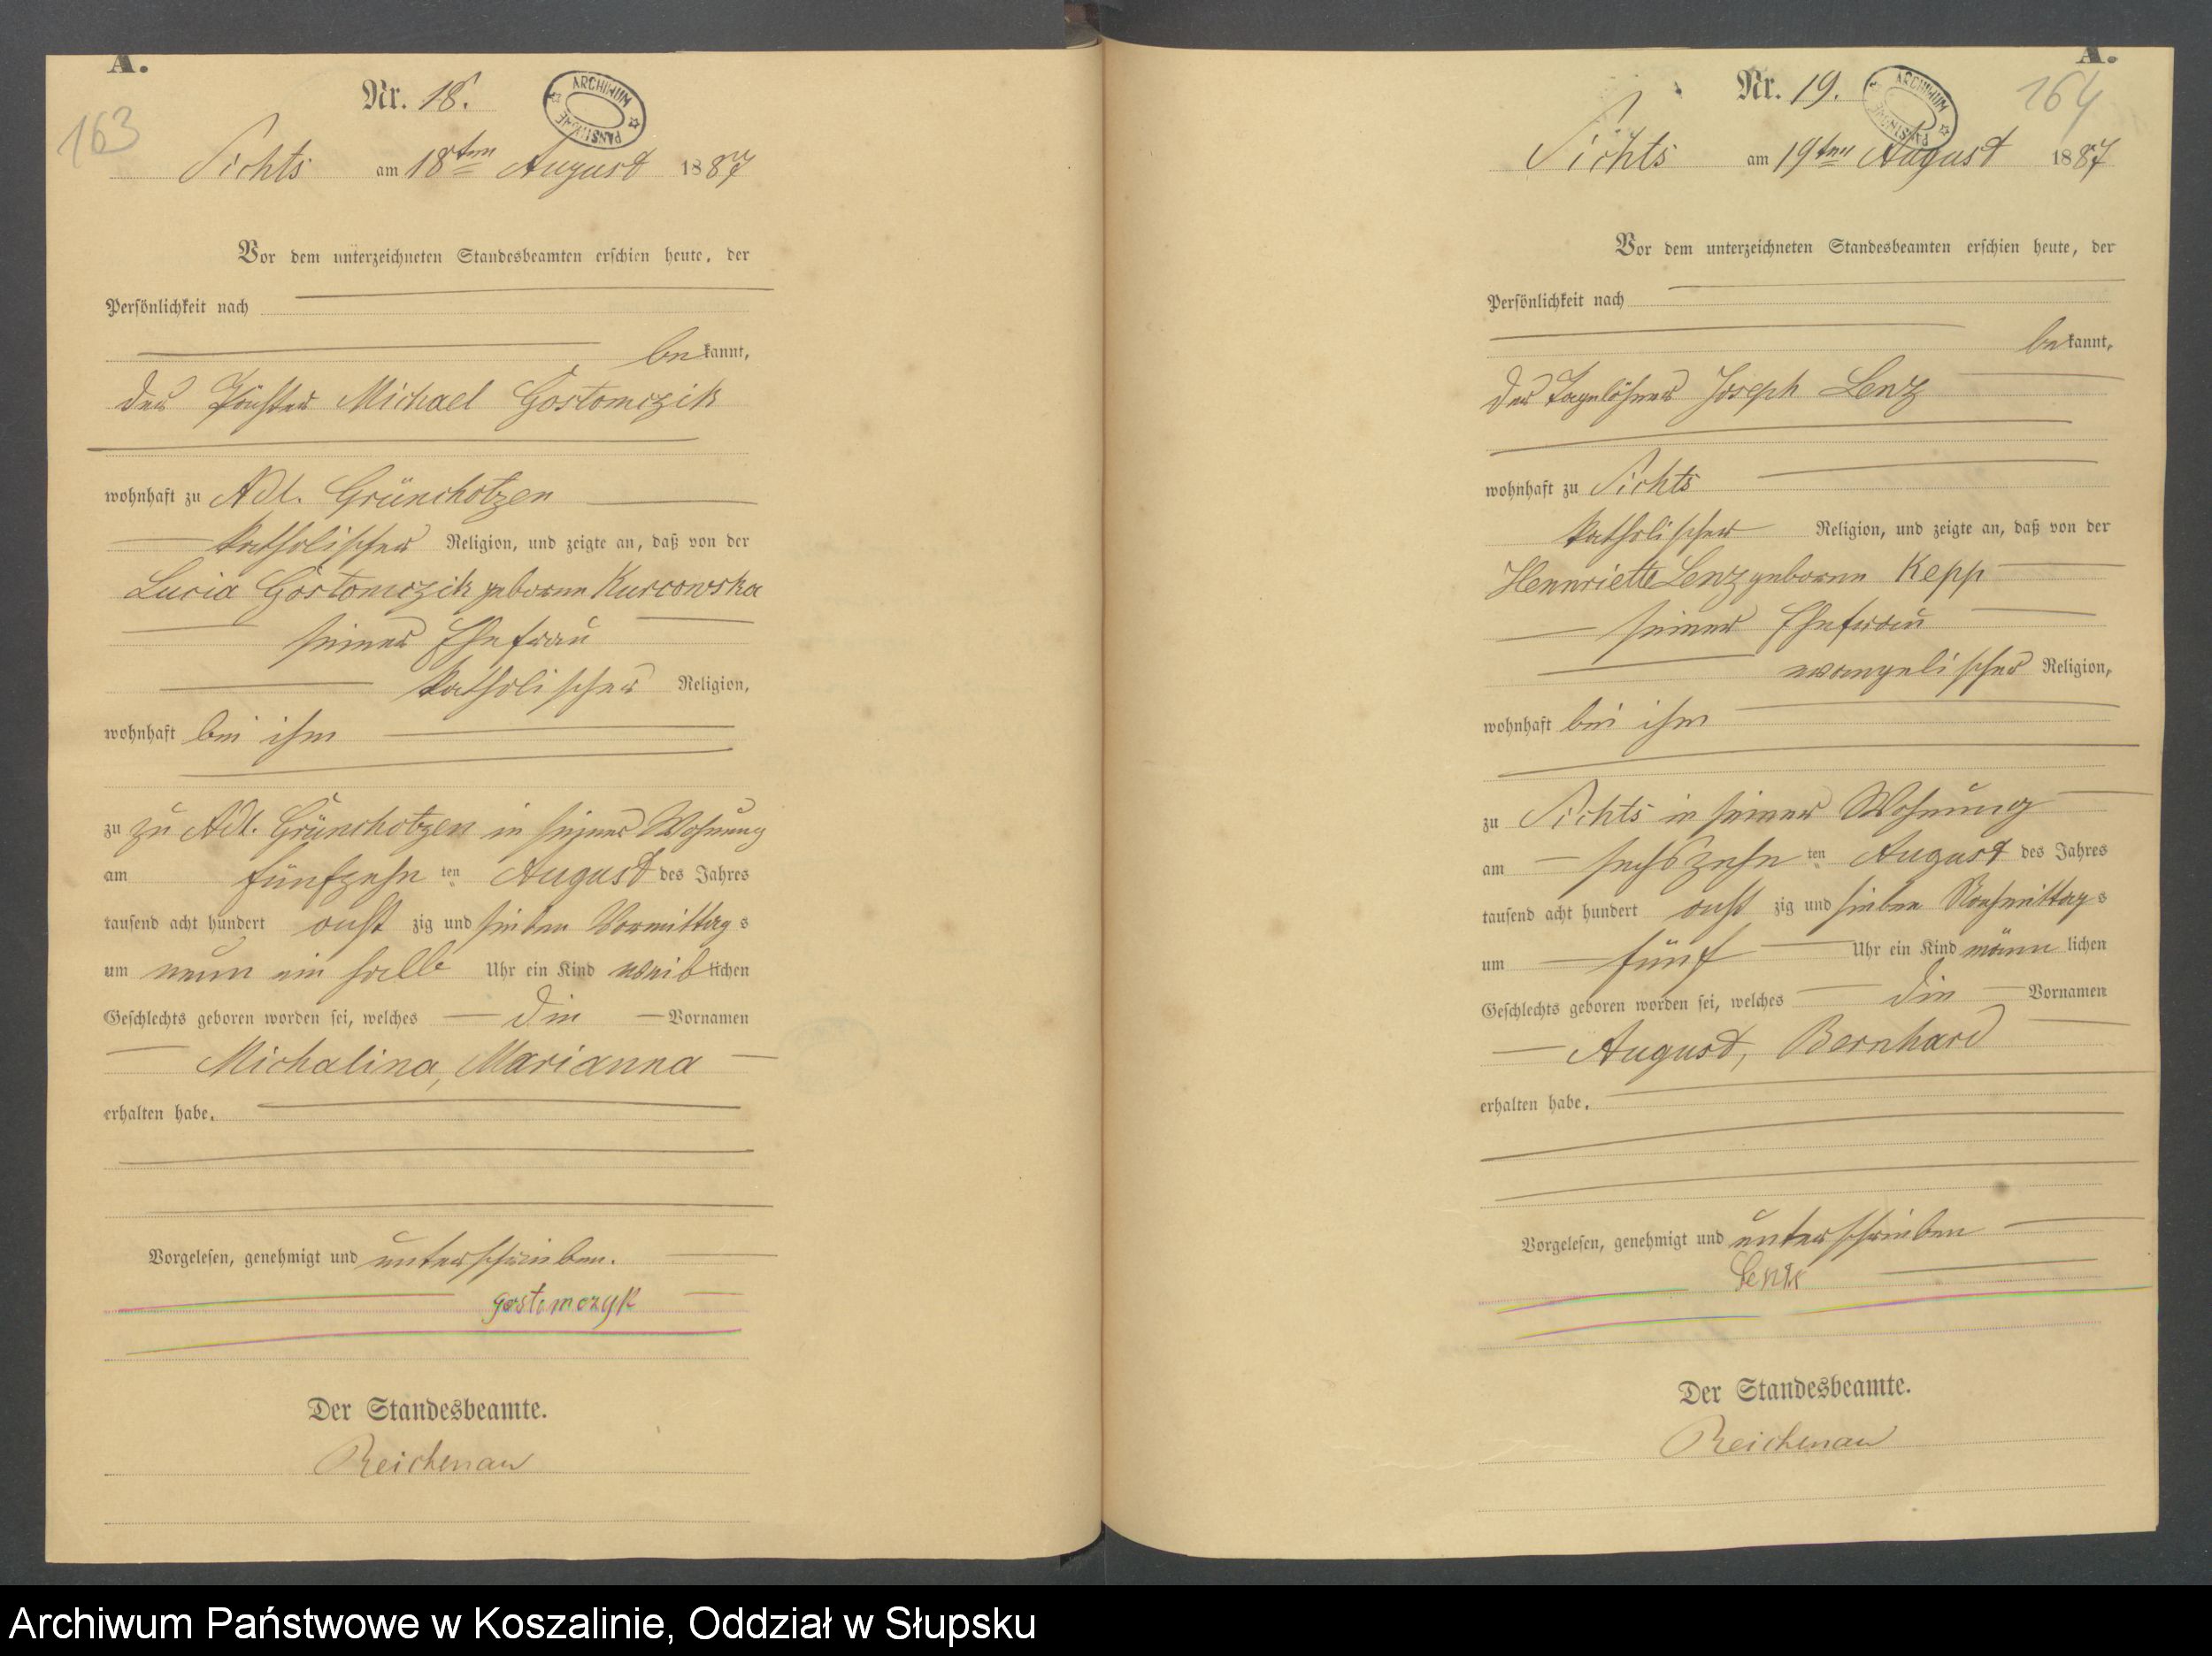 A.
Nr. 18.
ARCHIWUM PAŃSTWOWE
163
Sichts am 18ten August 1887
Vor dem unterzeichneten Standesbeamten erschien heute, der
Persönlichkeit nach
bekannt,
der Michael Gostomczik
wohnhaft zu Adl. Grünchotzen
katholischer Religion, und zeigte an, daß von der
Lucia Gostomczik geborne Kurcowska
seiner Ehefrau
katholischer Religion,
wohnhaft bei ihm
zu zu Adl. Grünchotzen in seiner Wohnung
am fünfzehn ten August des Jahres
tausend acht hundert acht zig und sieben Vormittags
um neun ein halb Uhr ein Kind weiblichen
Geschlechts geboren worden sei, welches die Vornamen
Michalina, Marianna
erhalten habe.
Vorgelesen, genehmigt und unterschrieben.
gostomczyk
Der Standesbeamte.
Reichenau
A.
Nr. 19.
ARCHIWUM PAŃSTWOWE
164
Sichts am 19ten August 1887
Vor dem unterzeichneten Standesbeamten erschien heute, der
Persönlichkeit nach
bekannt,
der Tagelöhner Joseph Lenz
wohnhaft zu Sichts
katholischer Religion, und zeigte an, daß von der
Hennriette Lenz geborne Kepp
seiner Ehefrau
evangelischer Religion,
wohnhaft bei ihm
zu Sichts in seiner Wohnung
am sechszehn ten August des Jahres
tausend acht hundert acht zig und sieben Nachmittags
um fünf Uhr ein Kind männlichen
Geschlechts geboren worden sei, welches die Vornamen
August, Bernhard
erhalten habe.
Vorgelesen, genehmigt und unterschrieben
Der Standesbeamte.
Reichenau
Archiwum Państwowe w Koszalinie, Oddział w Słupsku